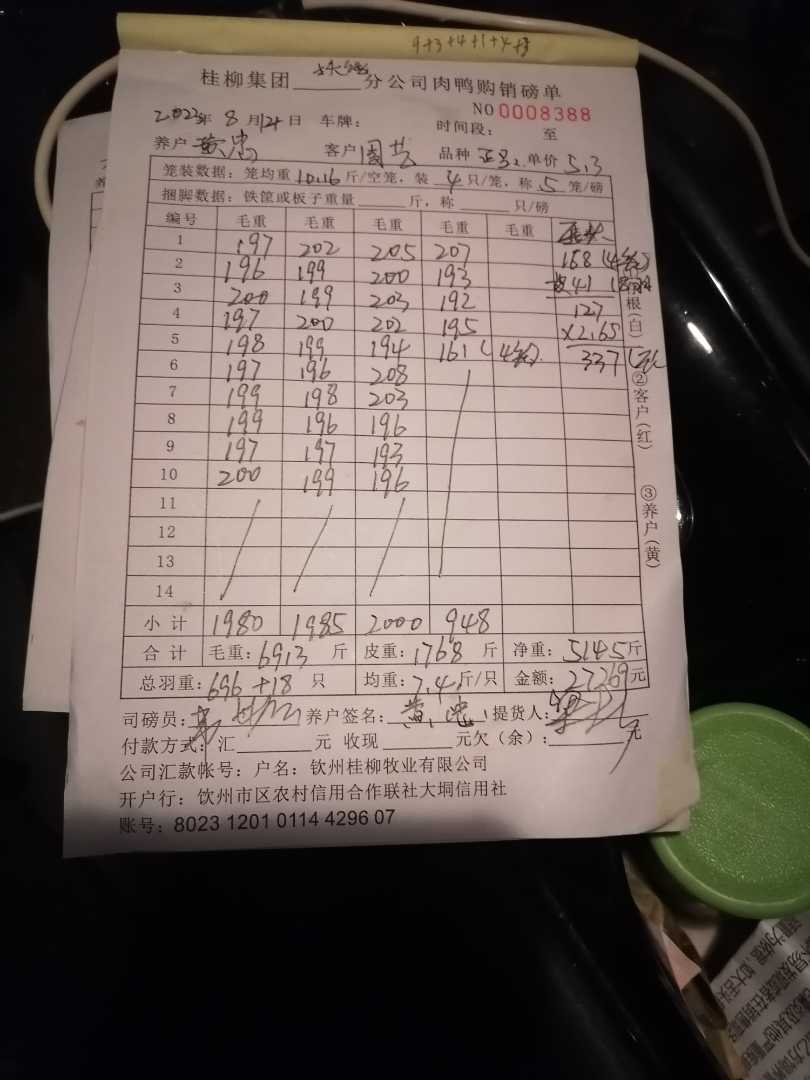 9+3+4+1+4+8
桂柳集团 分公司肉鸭购销磅单
NO 0008388
2023年 8月12日 车牌： 时间段： 至
养户 黄忠 客户 周 品种 单价 5.3
笼装数据：笼均重 10.16 斤/空笼，装 4 只/笼，称 5 笼/磅
捆脚数据：铁筐或板子重量 斤，称 只/磅
编号 毛重 毛重 毛重 毛重 毛重
1 197 202 205 207
2 196 199 200 193 168 (4笼)
3 200 199 203 192 41
4 197 200 202 195 127
5 198 199 194 161 (4笼) ×2.65
6 197 196 208 337
7 199 198 203
8 199 196 196
9 197 197 193
10 200 199 196
11
12
13
14
小计 1980 1985 2000 948
合计 毛重：6913 斤 皮重：1768 斤 净重：5145 斤
总羽重：696+18 只 均重：7.4 斤/只 金额：27269 元
司磅员： 养户签名：黄忠 提货人：
付款方式：汇 元 收现 元欠（余）： 元
公司汇款帐号：户名：钦州桂柳牧业有限公司
开户行：钦州市区农村信用合作联社大垌信用社
账号：8023 1201 0114 4296 07
根（白）
②客户（红）
③养户（黄）